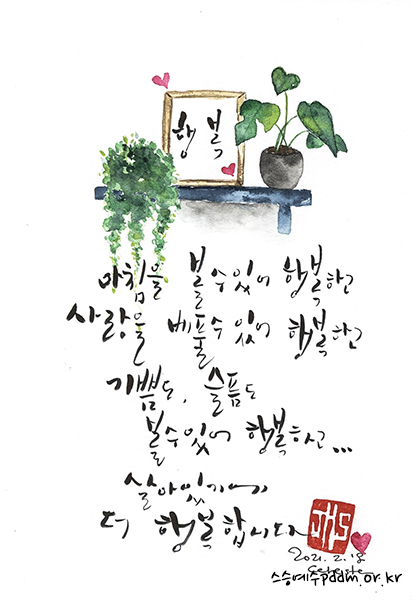 행복
아침을 볼수있어 행복하고
사랑을 베풀수있어 행복하고
기쁨도, 슬픔도
볼수있어 행복하고...
살아있기에
더 행복합니다
JHS
2021. 2. 18
스승예수pddm.or.kr